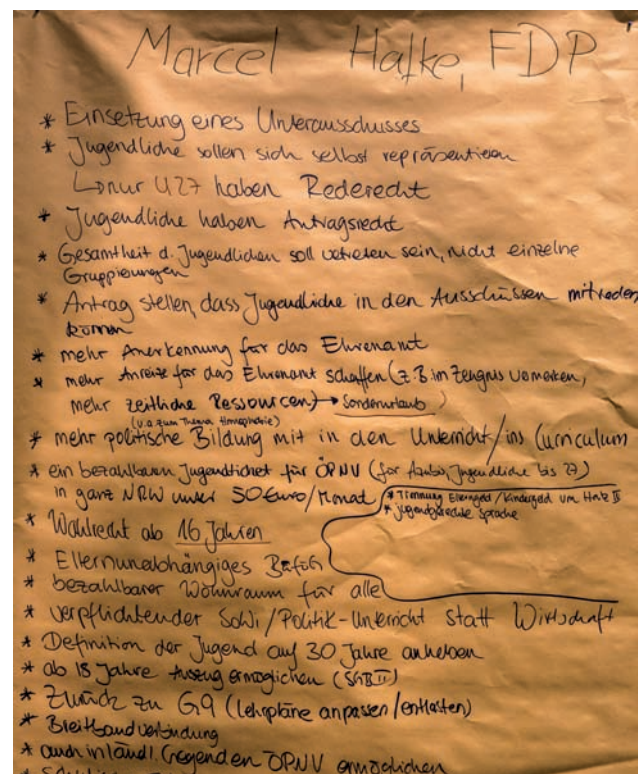 Marcel Hafke, FDP
* Einsetzung eines Unterausschusses
* Jugendliche sollen sich selbst repräsentieren
↳ nur U27 haben Rederecht
* Jugendliche haben Antragsrecht
* Gesamtheit d. Jugendlichen soll vetreten sein, nicht einzelne
Gruppierungen
* Antrag stellen, dass Jugendliche in den Ausschüssen mitreden
können
* mehr Anerkennung für das Ehrenamt
* mehr Anreize für das Ehrenamt schaffen (z.B im Zeugnis vermerken,
mehr zeitliche Ressourcen) → Sonderurlaub
(v.a zum Thema Homophobie)
* mehr politische Bildung mit in den Unterricht/ins Curriculum
* ein bezahlbares Jugendticket für ÖPNV (für Azubis, Jugendliche bis 27)
in ganz NRW unter 50 Euro/Monat
* Trennung Elterngeld/Kindergeld von Hartz IV
* jugendgerechte Sprache
* Wahlrecht ab 16 Jahren
* Elternunabhängiges Bafög
* bezahlbarer Wohnraum für alle
* verpflichtender SoWi/Politik-Unterricht statt Wirtschaft
* Definition der Jugend auf 30 Jahre anheben
* ab 18 Jahre Auszug ermöglichen (SGB II)
* Zurück zu G9 (Lehrpläne anpassen/entlasten)
* Breitbandverbindung
* auch in ländl. Gegenden ÖPNV ermöglichen